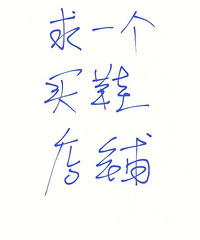 求一个
买鞋
店铺